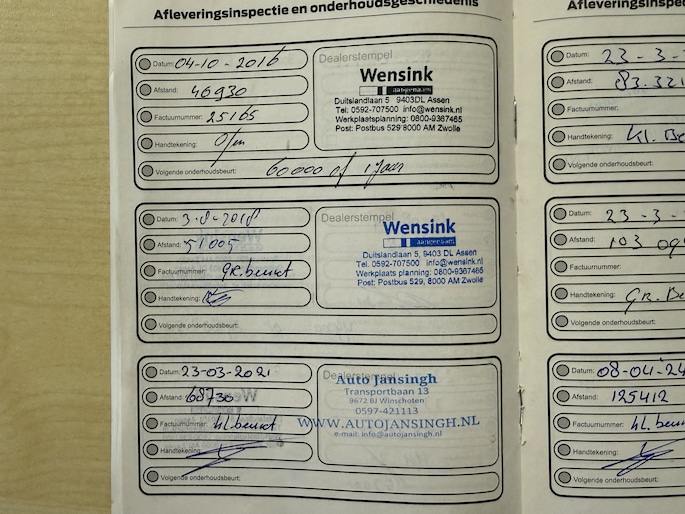 Afleveringsinspectie en onderhoudsgeschiedenis
Datum: 04-10-2016
Afstand: 46930
Factuurnummer: 25165
Handtekening:
Volgende onderhoudsbeurt: 60000 of 1 jaar
Dealerstempel
Wensink
aangenaam
Duitslandlaan 5 9403DL Assen
Tel: 0592-707500 info@wensink.nl
Werkplaatsplanning: 0800-9367465
Post: Postbus 529 8000 AM Zwolle
Datum: 3-8-2018
Afstand: 51005
Factuurnummer: GR.beurt
Handtekening:
Volgende onderhoudsbeurt:
Dealerstempel
Wensink
aangenaam
Duitslandlaan 5, 9403 DL Assen
Tel. 0592-707500 info@wensink.nl
Werkplaats planning: 0800-9367465
Post: Postbus 529, 8000 AM Zwolle
Datum: 23-03-2021
Afstand: 68730
Factuurnummer: kl.beurt
Handtekening:
Volgende onderhoudsbeurt:
Dealerstempel
Auto Jansingh
Transportbaan 13
9672 BJ Winschoten
0597-421113
WWW.AUTOJANSINGH.NL
e-mail: info@autojansingh.nl
Afleveringsinspec
Datum: 23-3-
Afstand: 83.321
Factuurnummer:
Handtekening: Kl. Be
Volgende onderhoudsbeurt:
Datum: 23-3-
Afstand: 103
Factuurnummer:
Handtekening: GR. Be
Volgende onderhoudsbeurt:
Datum: 08-04-24
Afstand: 125412
Factuurnummer: kl.beur
Handtekening:
Volgende onderhoudsbeurt: